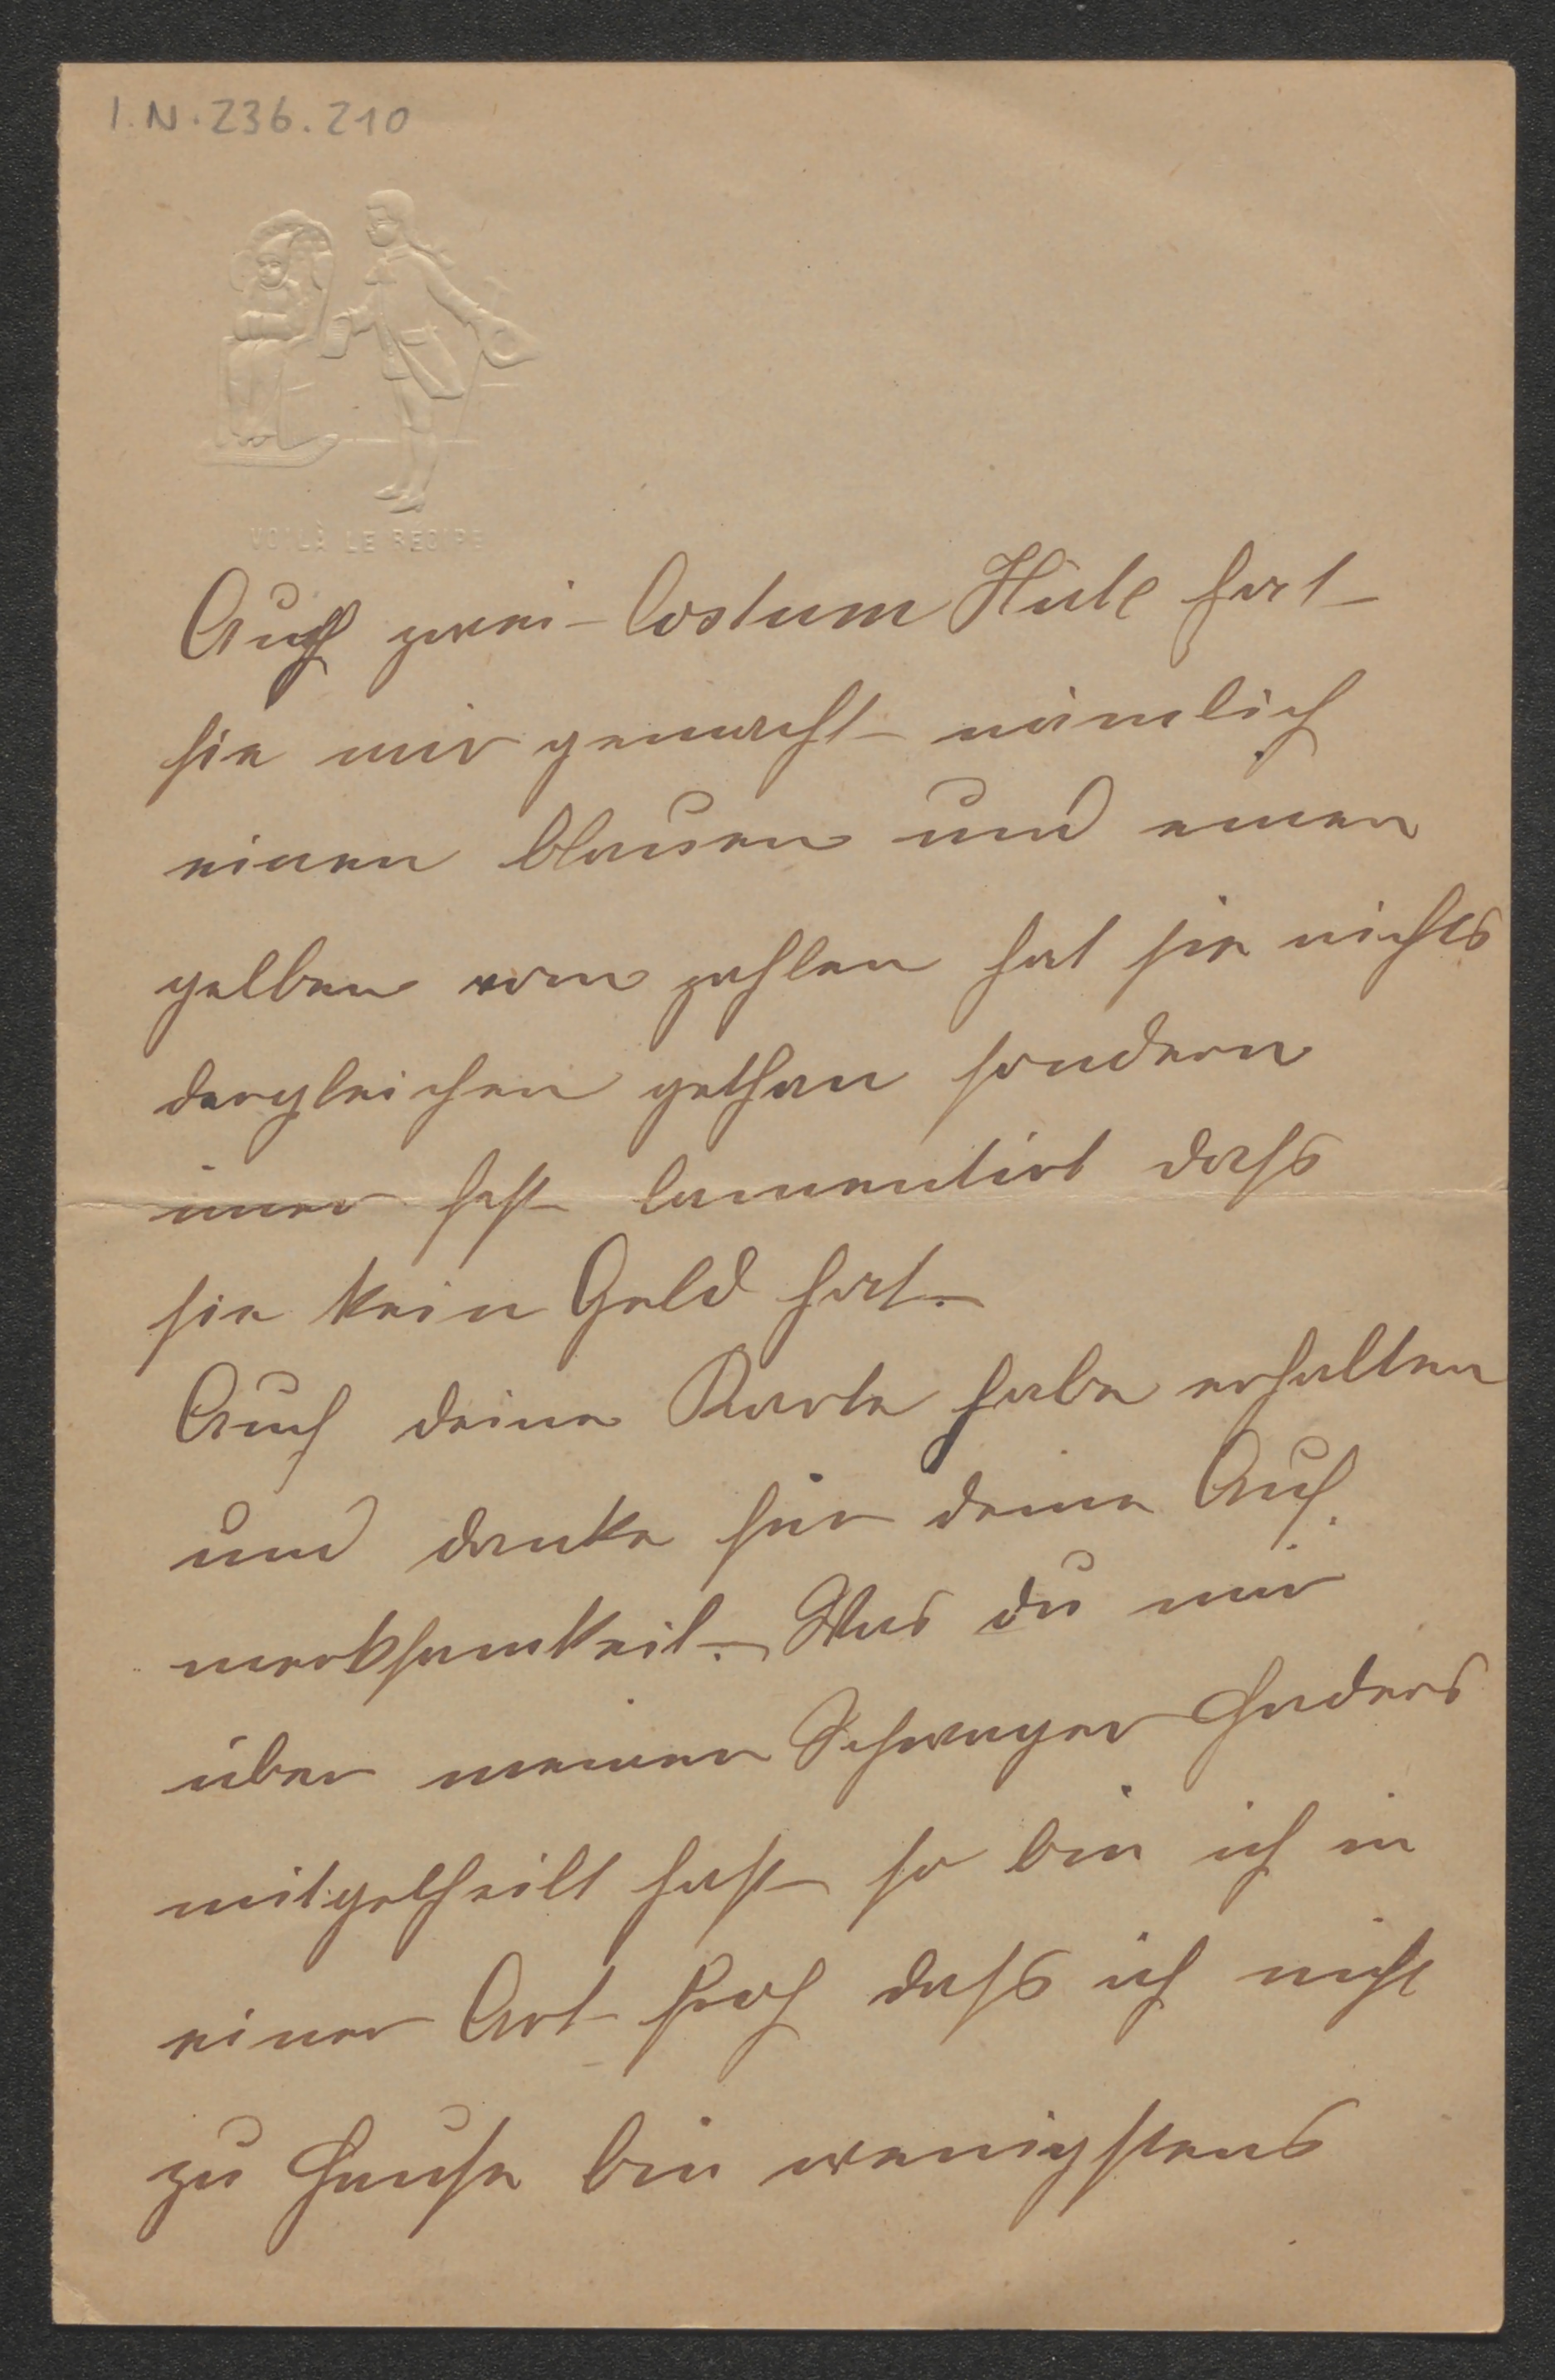 I.N. 236.210
VOILÀ LE RECIPE
Auch zwei Costum Hüte hat
sie mir gemacht nämlich
einen blauen und einen
gelben vom zahlen hat sie nichts
dergleichen gethan sondern
imer fest lamentirt dass
sie kein Geld hat.
Auch deine Karte habe erhalten
und danke für deine Auf
merksamkeit. Was du mir
über meinen Schwager
mitgetheilt hast so bin ich in
einer Art froh dass ich nicht
zu Hause bin wenigstens